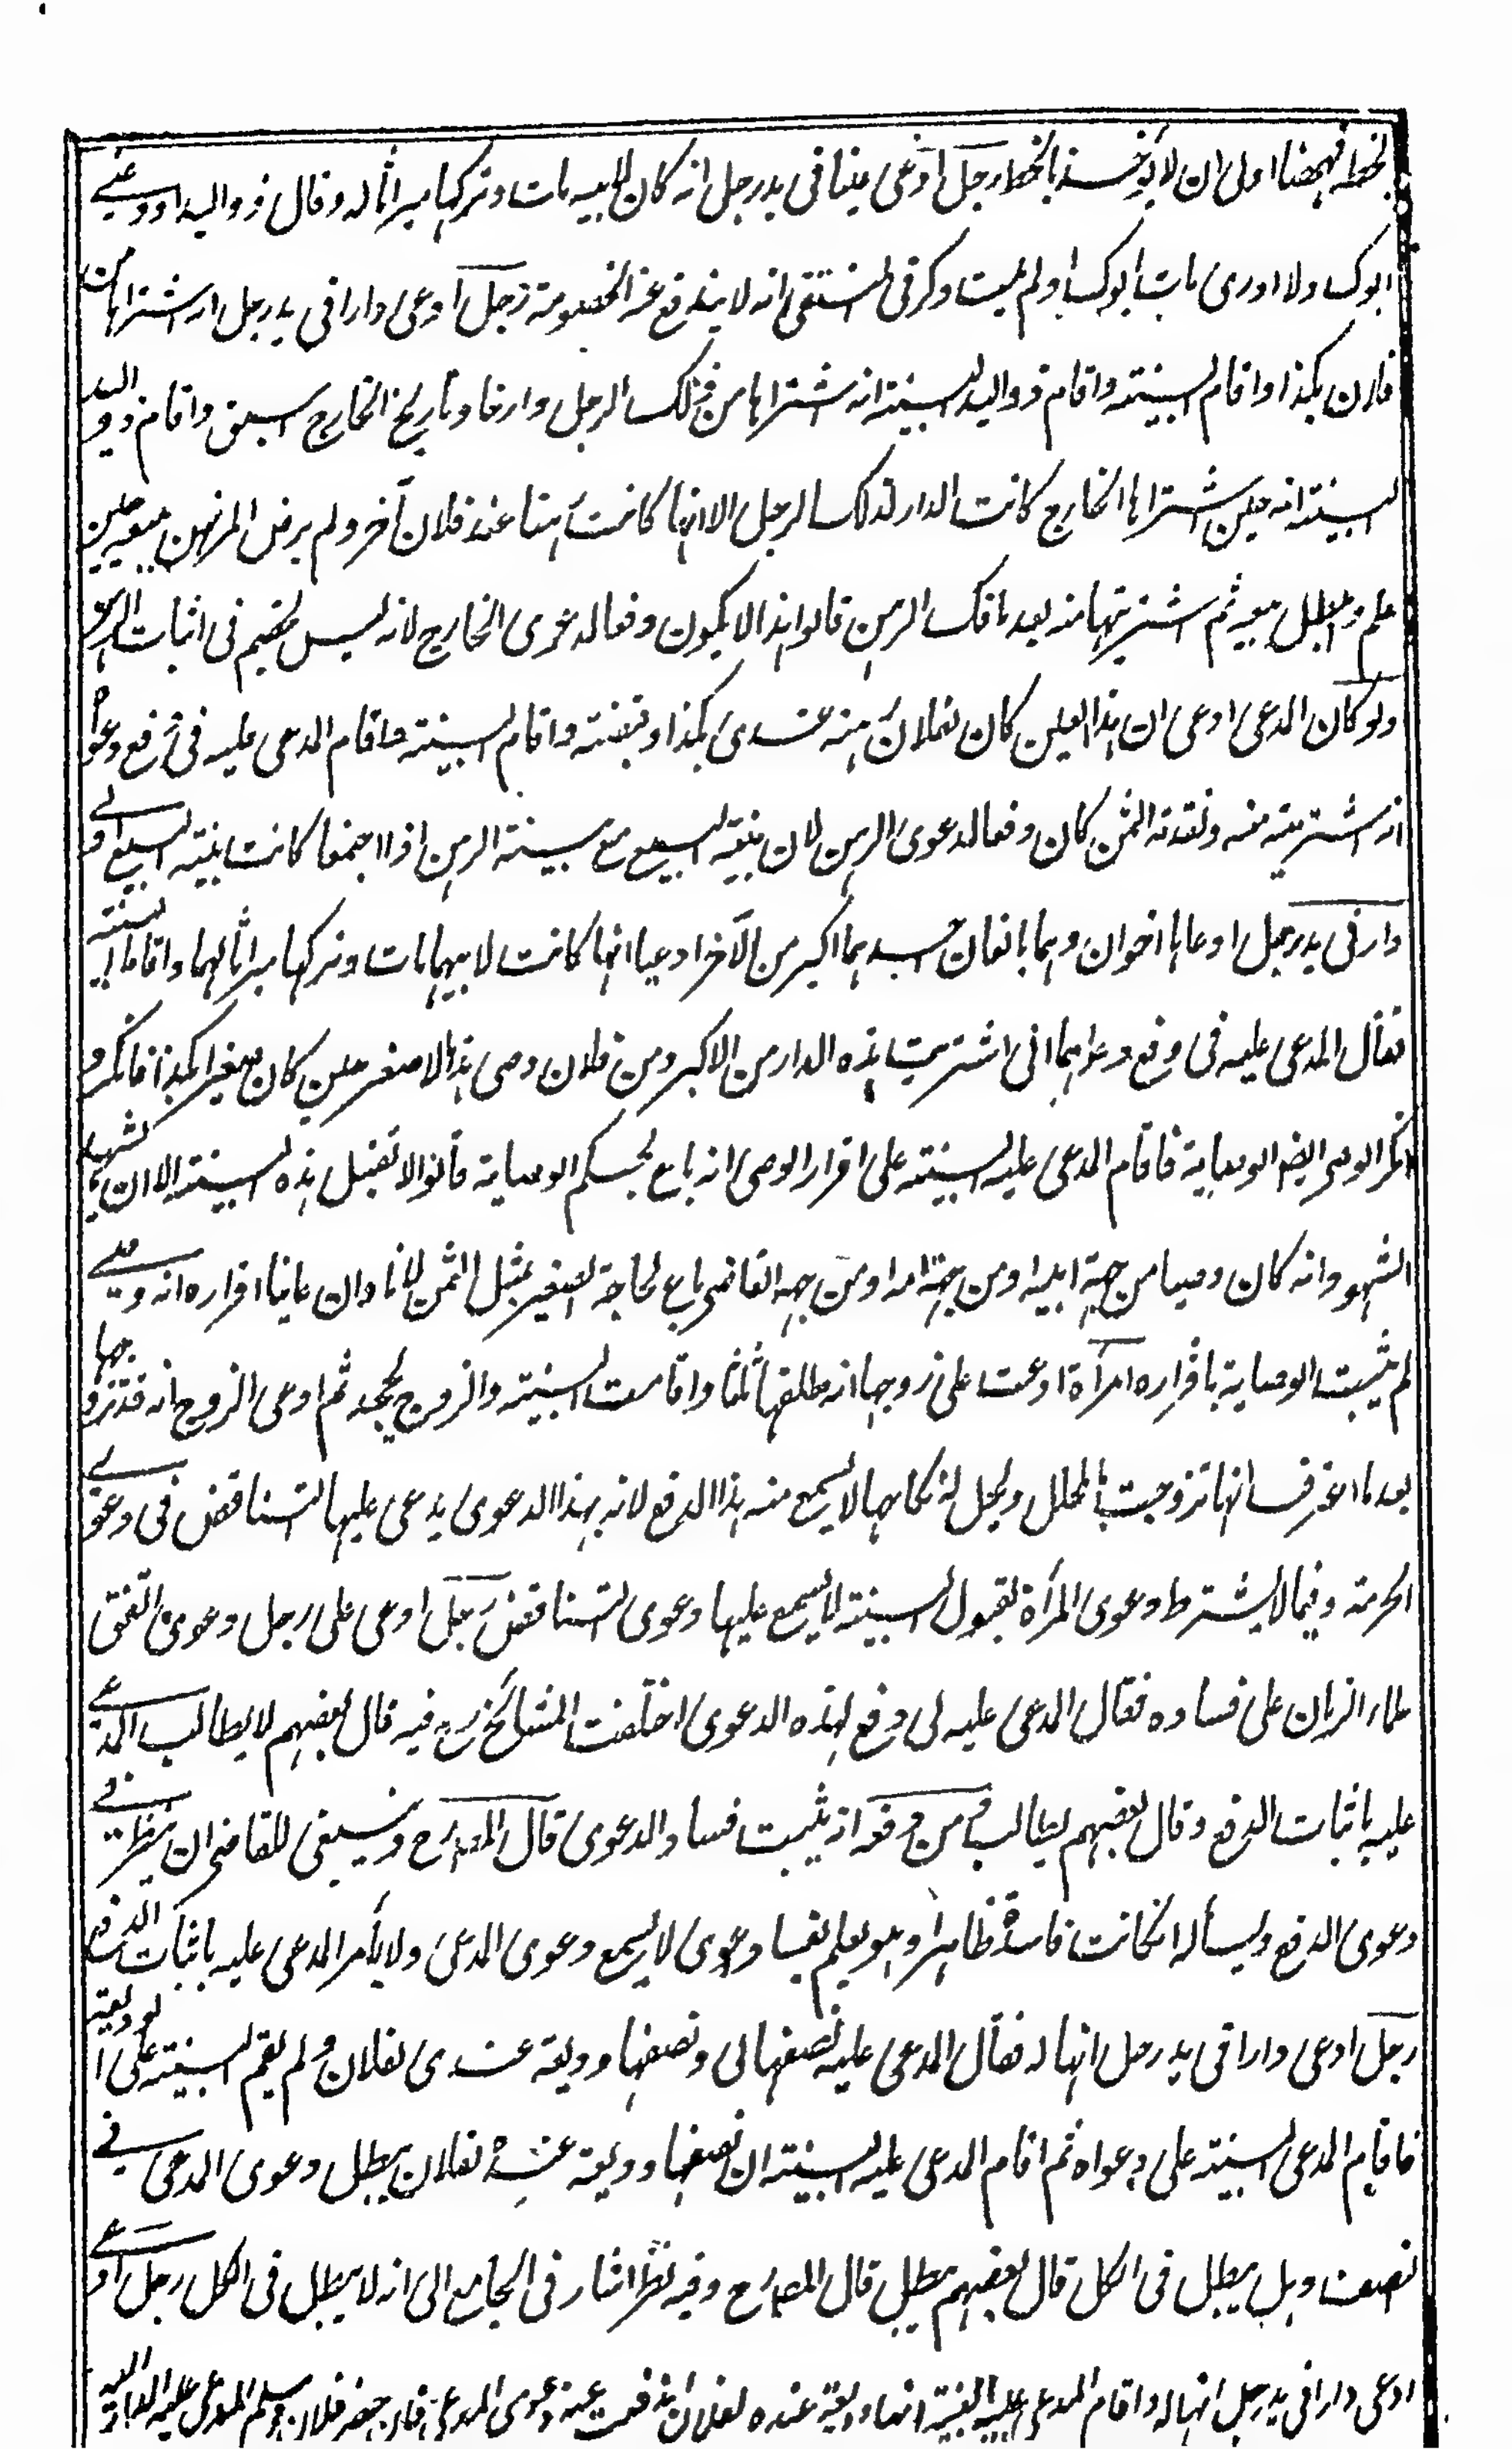 بخطه فههنا اولى ان لا يؤخذ بالخط رجل ادعى عينا فى يد رجل انه كان لابيه مات وتركها ميراثا له وقال ذو اليد اودعنى
ابوك ولا ادرى مات ابوك او لم يمت وذكر فى المنتقى انه لا يندفع عنه الخصومة رجل ادعى دارا فى يد رجل انه اشتراها من
فلان بكذا واقام البينة واقام ذو اليد البينة انه اشتراها من ذلك الرجل وارخا وتاريخ الخارج اسبق واقام ذو اليد
البينة انه حين اشتراها الخارج كانت الدار لذلك الرجل الا انها كانت رهنا عند فلان آخر ولم يرض المرتهن ببيعه حين
علم وابطل بيعه ثم اشتريتها منه بعد ما فك الرهن قالوا هذا لا يكون دفعا لدعوى الخارج لانه ليس بخصم فى اثبات الرهن
ولو كان المدعى ادعى ان هذا العين كان لفلان رهنه عندى بكذا وقبضته واقام البينة واقام المدعى عليه فى دفع دعواه
انه اشتريته منه ونقدته الثمن كان دفعا لدعوى الرهن لان بينة البيع مع بينة الرهن اذا اجتمعا كانت بينة البيع اولى
دار فى يد رجل ادعاها اخوان وهما بالغان احدهما اكبر من الآخر ادعيا انها كانت لابيهما مات وتركها ميراثا لهما واقاما البينة
فقال المدعى عليه فى دفع دعواهما انى اشتريت هذه الدار من الاكبر ومن فلان وصى هذا الاصغر حين كان صغيرا بكذا فانكر و
انكر الوصى ايضا الوصاية فاقام المدعى عليه البينة على اقرار الوصى انه باع بحكم الوصاية قالوا لا تقبل هذه البينة الا ان يشهد
الشهود انه كان وصيا من جهة ابيه او من جهة امه او من جهة القاضى باع لحاجة الصغير بمثل الثمن لانا وان عاينا اقراره انه وصى
لم يثبت الوصاية باقراره امرأة ادعت على زوجها انه طلقها ثلثا واقامت البينة والزوج يجحد ثم ادعى الزوج انه قد تزوجها
بعد ما اعترفت انها تزوجت بالمحلل ويحل له نكاحها لا يسمع منه هذا الدفع لانه بهذا الدعوى يدعى عليها التناقض فى دعوى
الحرمة وفيما لا يشترط دعوى المرأة لقبول البينة لا يسمع عليها دعوى التناقض رجل ادعى على رجل دعوى اتفق
علماء الزمان على فساده فقال المدعى عليه لى دفع لهذه الدعوى اختلفت المشائخ رح فيه قال بعضهم لا يطالب المدعى
عليه باثبات الدفع وقال بعضهم يطالب من دفعه اذ يثبت فساد الدعوى قال المصنف رح وينبغى للقاضى ان ينظر فى
دعوى الدفع ويسأله ان كانت فاسدة ظاهرا وهو يعلم بفساد دعوى لا يسمع دعوى المدعى ولا يأمر المدعى عليه باثبات الدفع
رجل ادعى دارا فى يد رجل انها له فقال المدعى عليه نصفها لى ونصفها وديعة عندى لفلان ولم يقم البينة على الوديعة
فاقام المدعى البينة على دعواه ثم اقام المدعى عليه البينة ان نصفها وديعة عنده لفلان يبطل دعوى المدعى فى
النصف وهل يبطل فى الكل قال بعضهم يبطل قال المصنف رح وفيه نظر اشار فى الجامع الى انه لا يبطل فى الكل رجل ادعى
ادعى دارا فى يد رجل انها له واقام المدعى عليه البينة انها وديعة عنده لفلان اندفعت عنه دعوى المدعى فان حضر فلان وسلم المدعى عليه الدار اليه